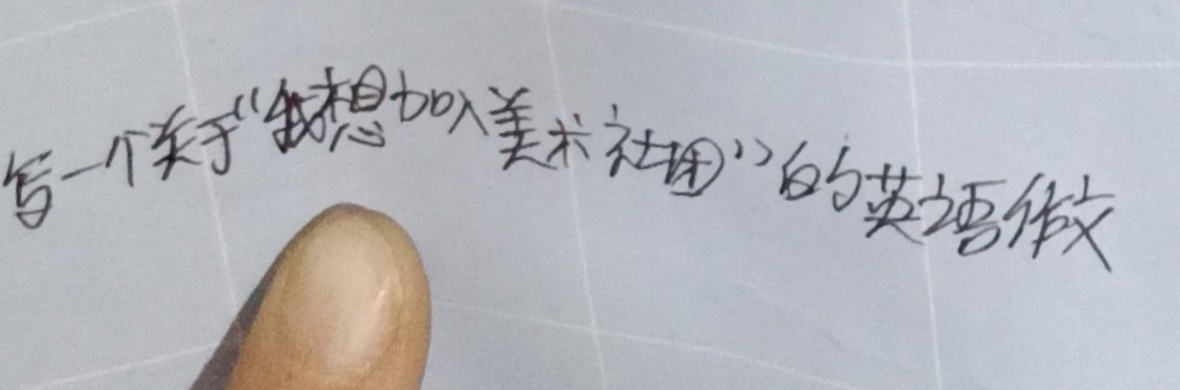 写一个关于“我想加入美术社团”的英语作文